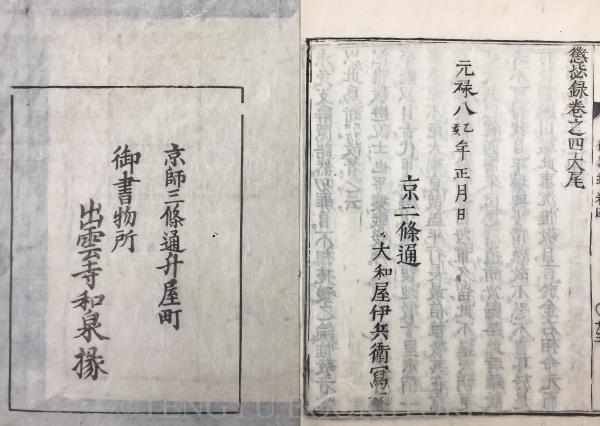 懲毖録巻之四大尾
元禄八乙亥年正月日
京二條通
大和屋伊兵衛
京師三條通升屋町
御書物所
出雲寺和泉掾
©TENGYU BOOKSTORE